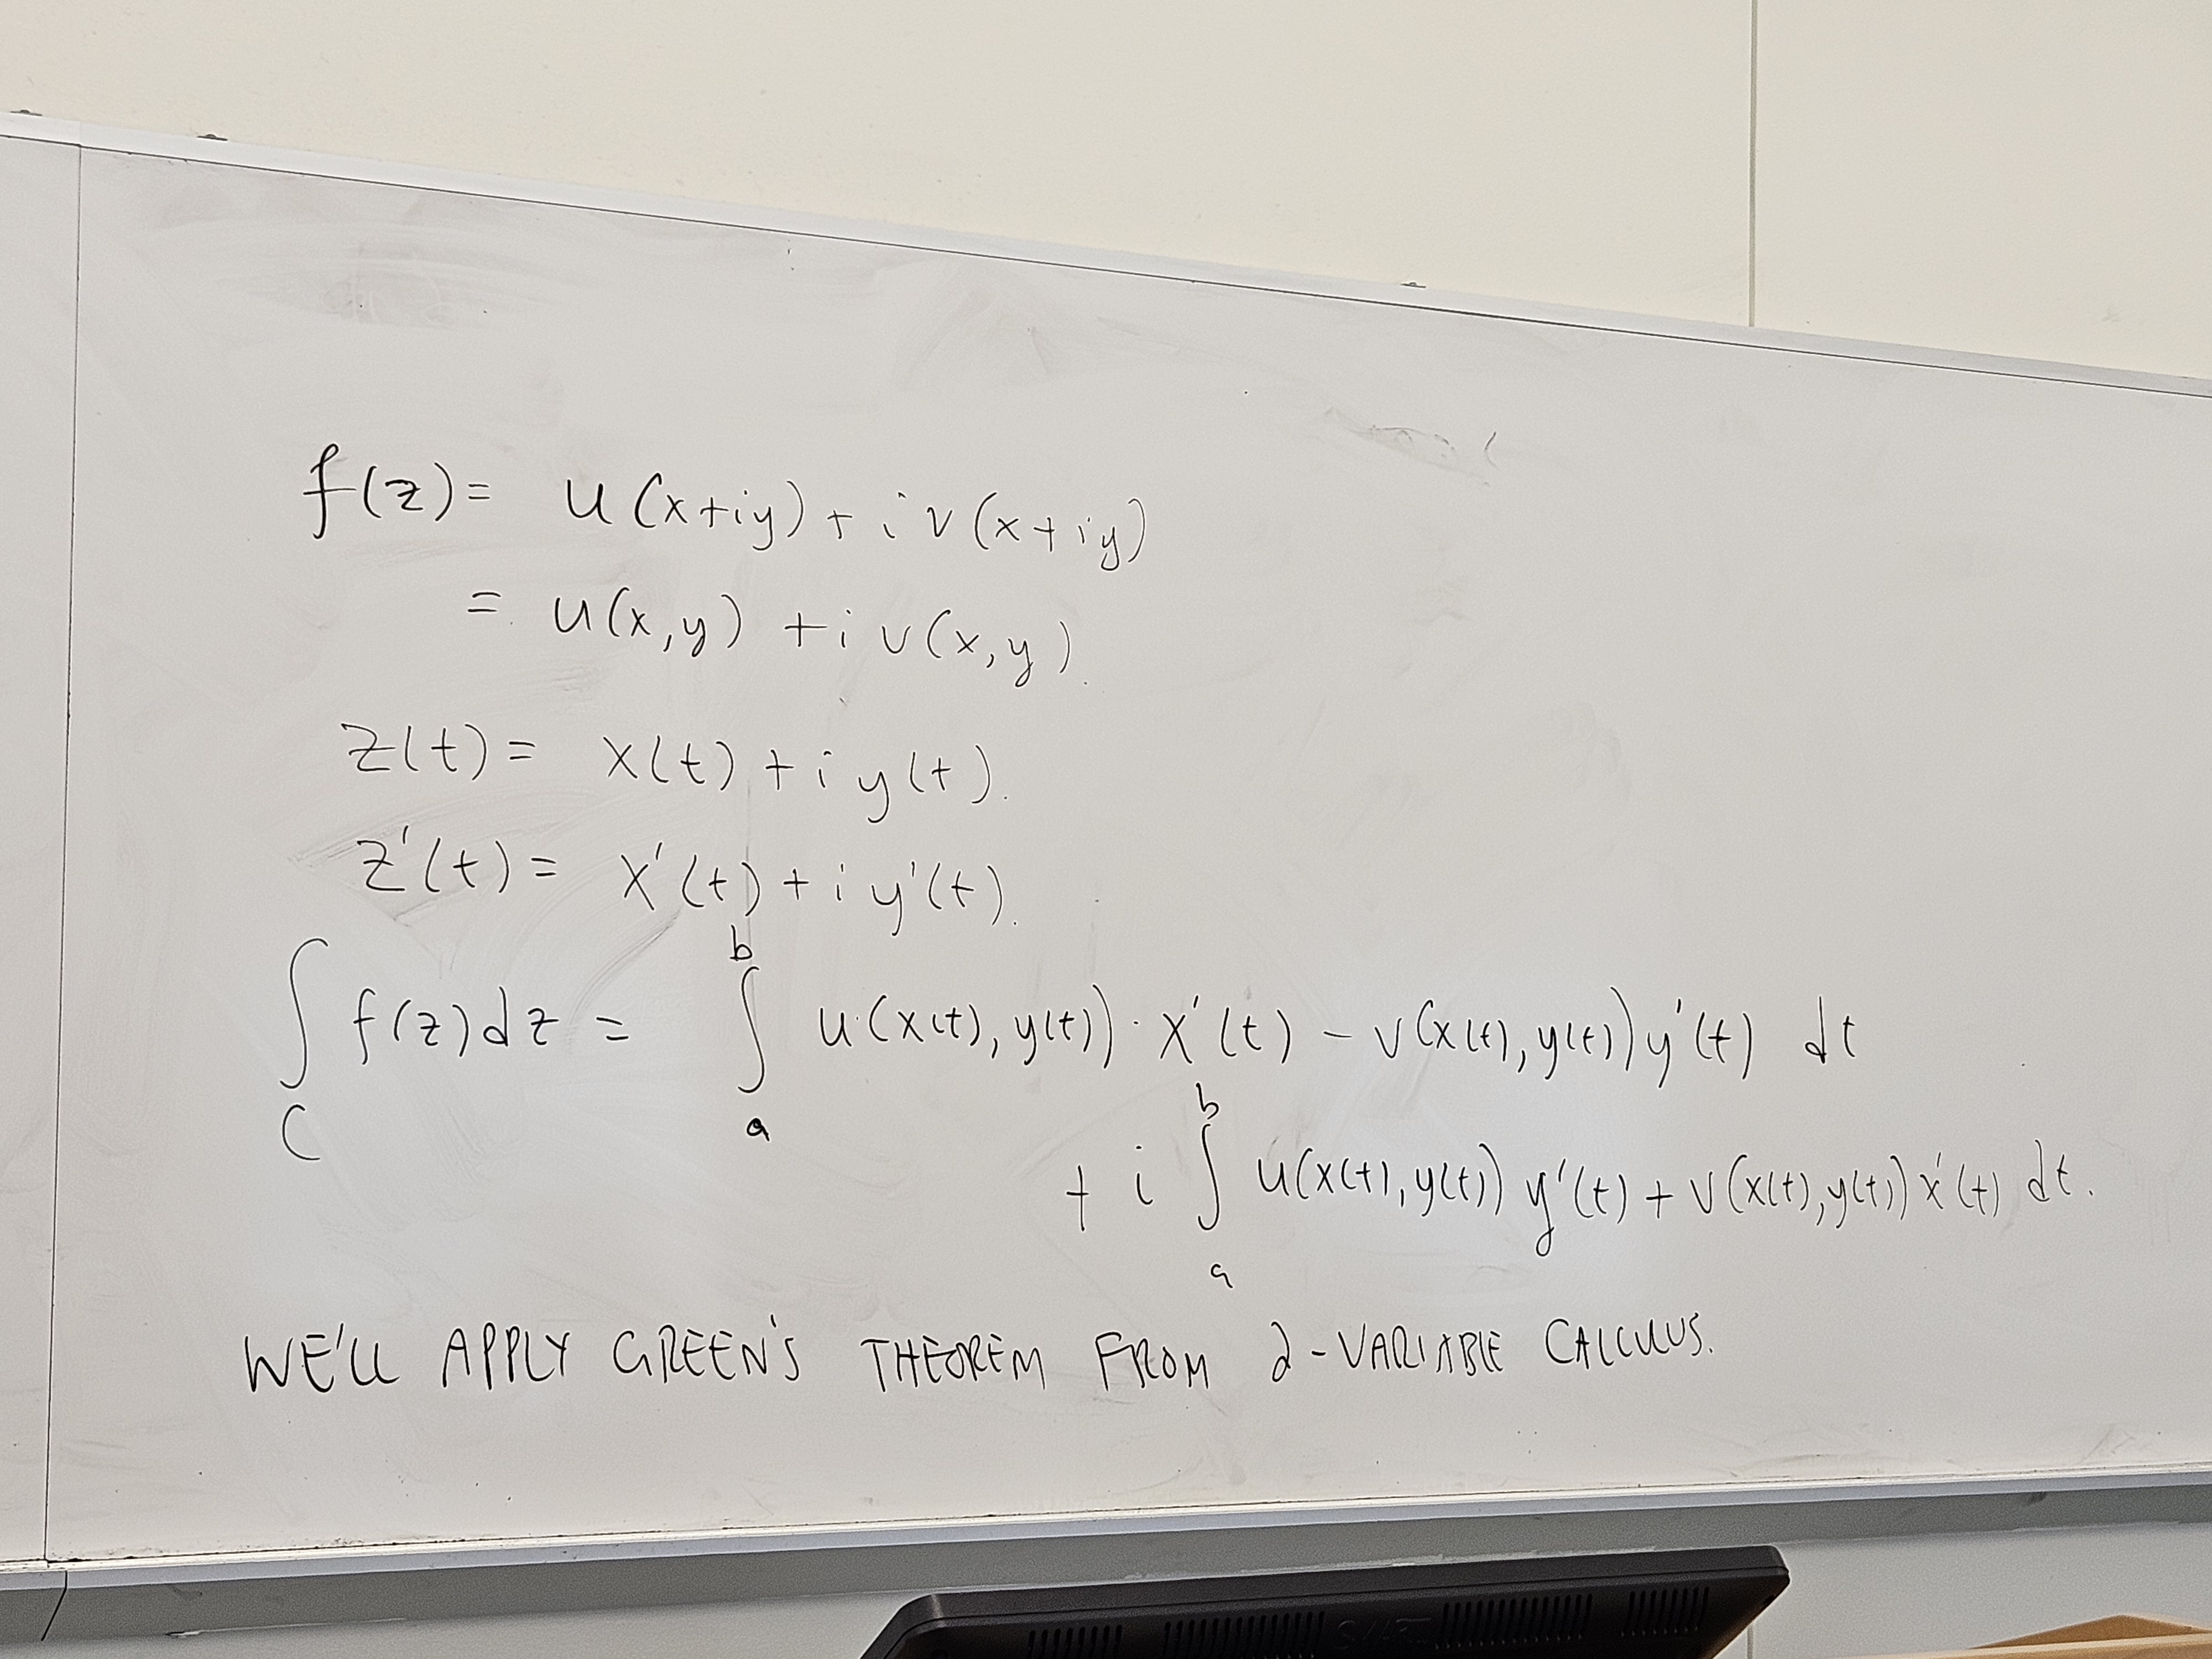 f(z) = u(x+iy) + i v(x+iy)
= u(x,y) + i v(x,y).
z(t) = x(t) + i y(t).
z'(t) = x'(t) + i y'(t).
∫_C f(z)dz = ∫_a^b u(x(t), y(t)) · x'(t) - v(x(t), y(t)) y'(t) dt
+ i ∫_a^b u(x(t), y(t)) y'(t) + v(x(t), y(t)) x'(t) dt.
WE'LL APPLY GREEN'S THEOREM FROM 2-VARIABLE CALCULUS.
SMART